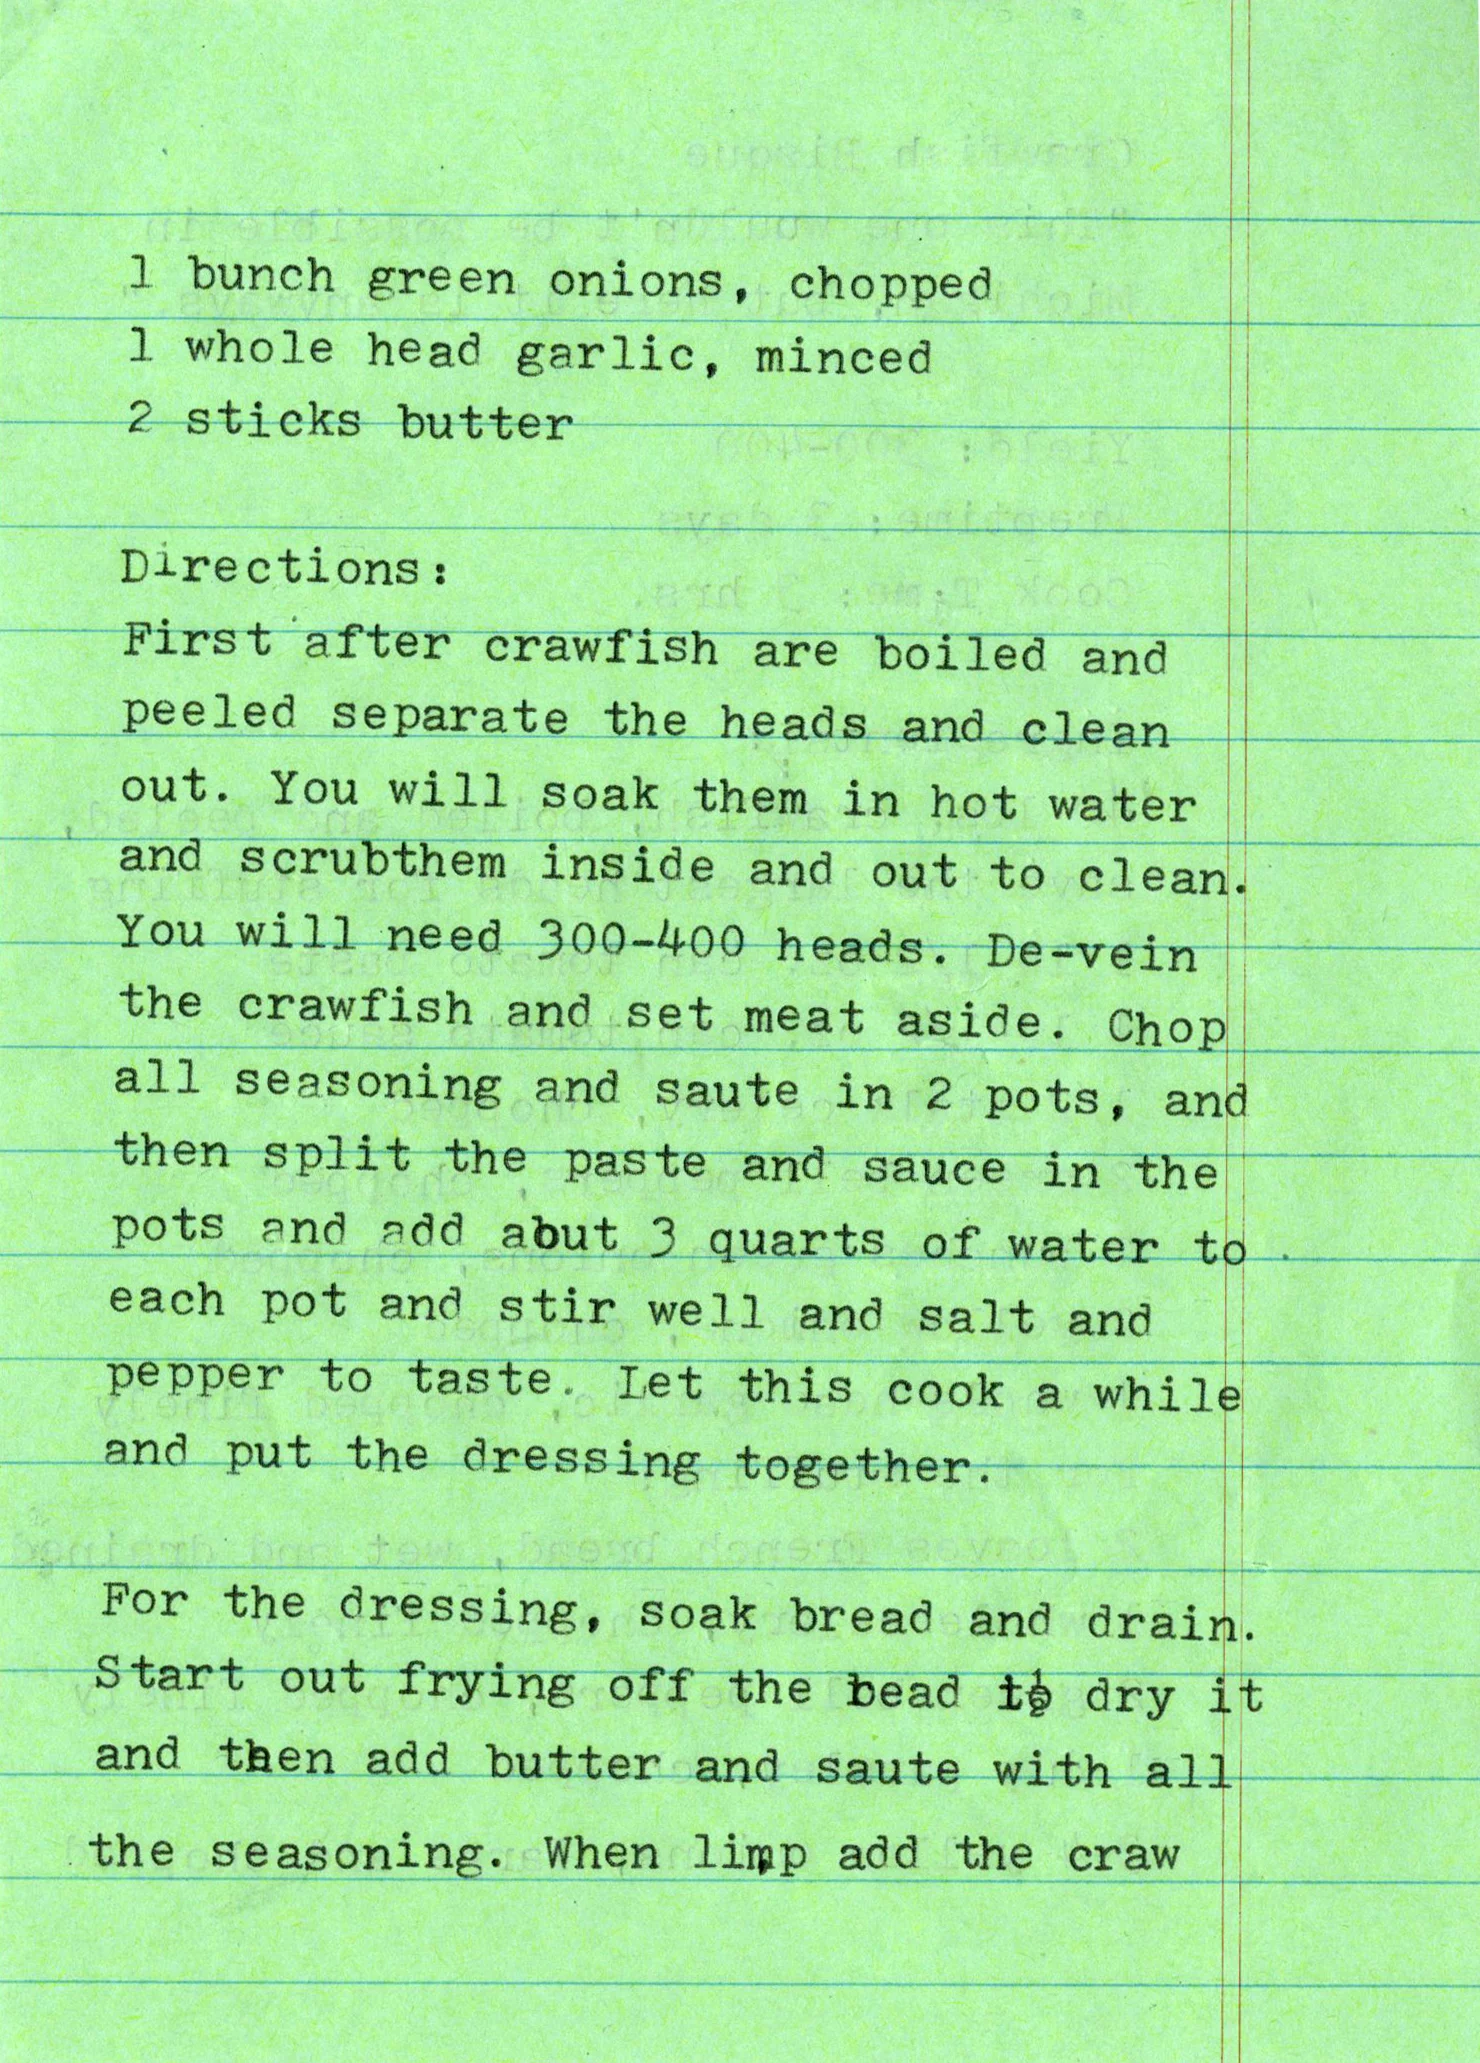 1 bunch green onions, chopped
1 whole head garlic, minced
2 sticks butter
Directions:
First after crawfish are boiled and
peeled separate the heads and clean
out. You will soak them in hot water
and scrubthem inside and out to clean.
You will need 300-400 heads. De-vein
the crawfish and set meat aside. Chop
all seasoning and saute in 2 pots, and
then split the paste and sauce in the
pots and add abut 3 quarts of water to
each pot and stir well and salt and
pepper to taste. Let this cook a while
and put the dressing together.
For the dressing, soak bread and drain.
Start out frying off the bead to dry it
and then add butter and saute with all
the seasoning. When limp add the craw